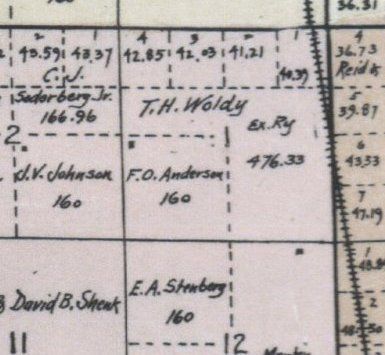 36.31
2 1 4 3 2 1 4
43.59 43.37 42.85 42.03 41.21 40.39 36.73
C. J. Reid
Soderberg Jr. T. H. Woldy 5
166.96 Ex. Ry 39.87
2 1 6
J.V. Johnson F.O. Anderson 476.33 43.33
160 160 7
47.19
1
David B. Shenk E.A. Stenberg 2
160
11 12